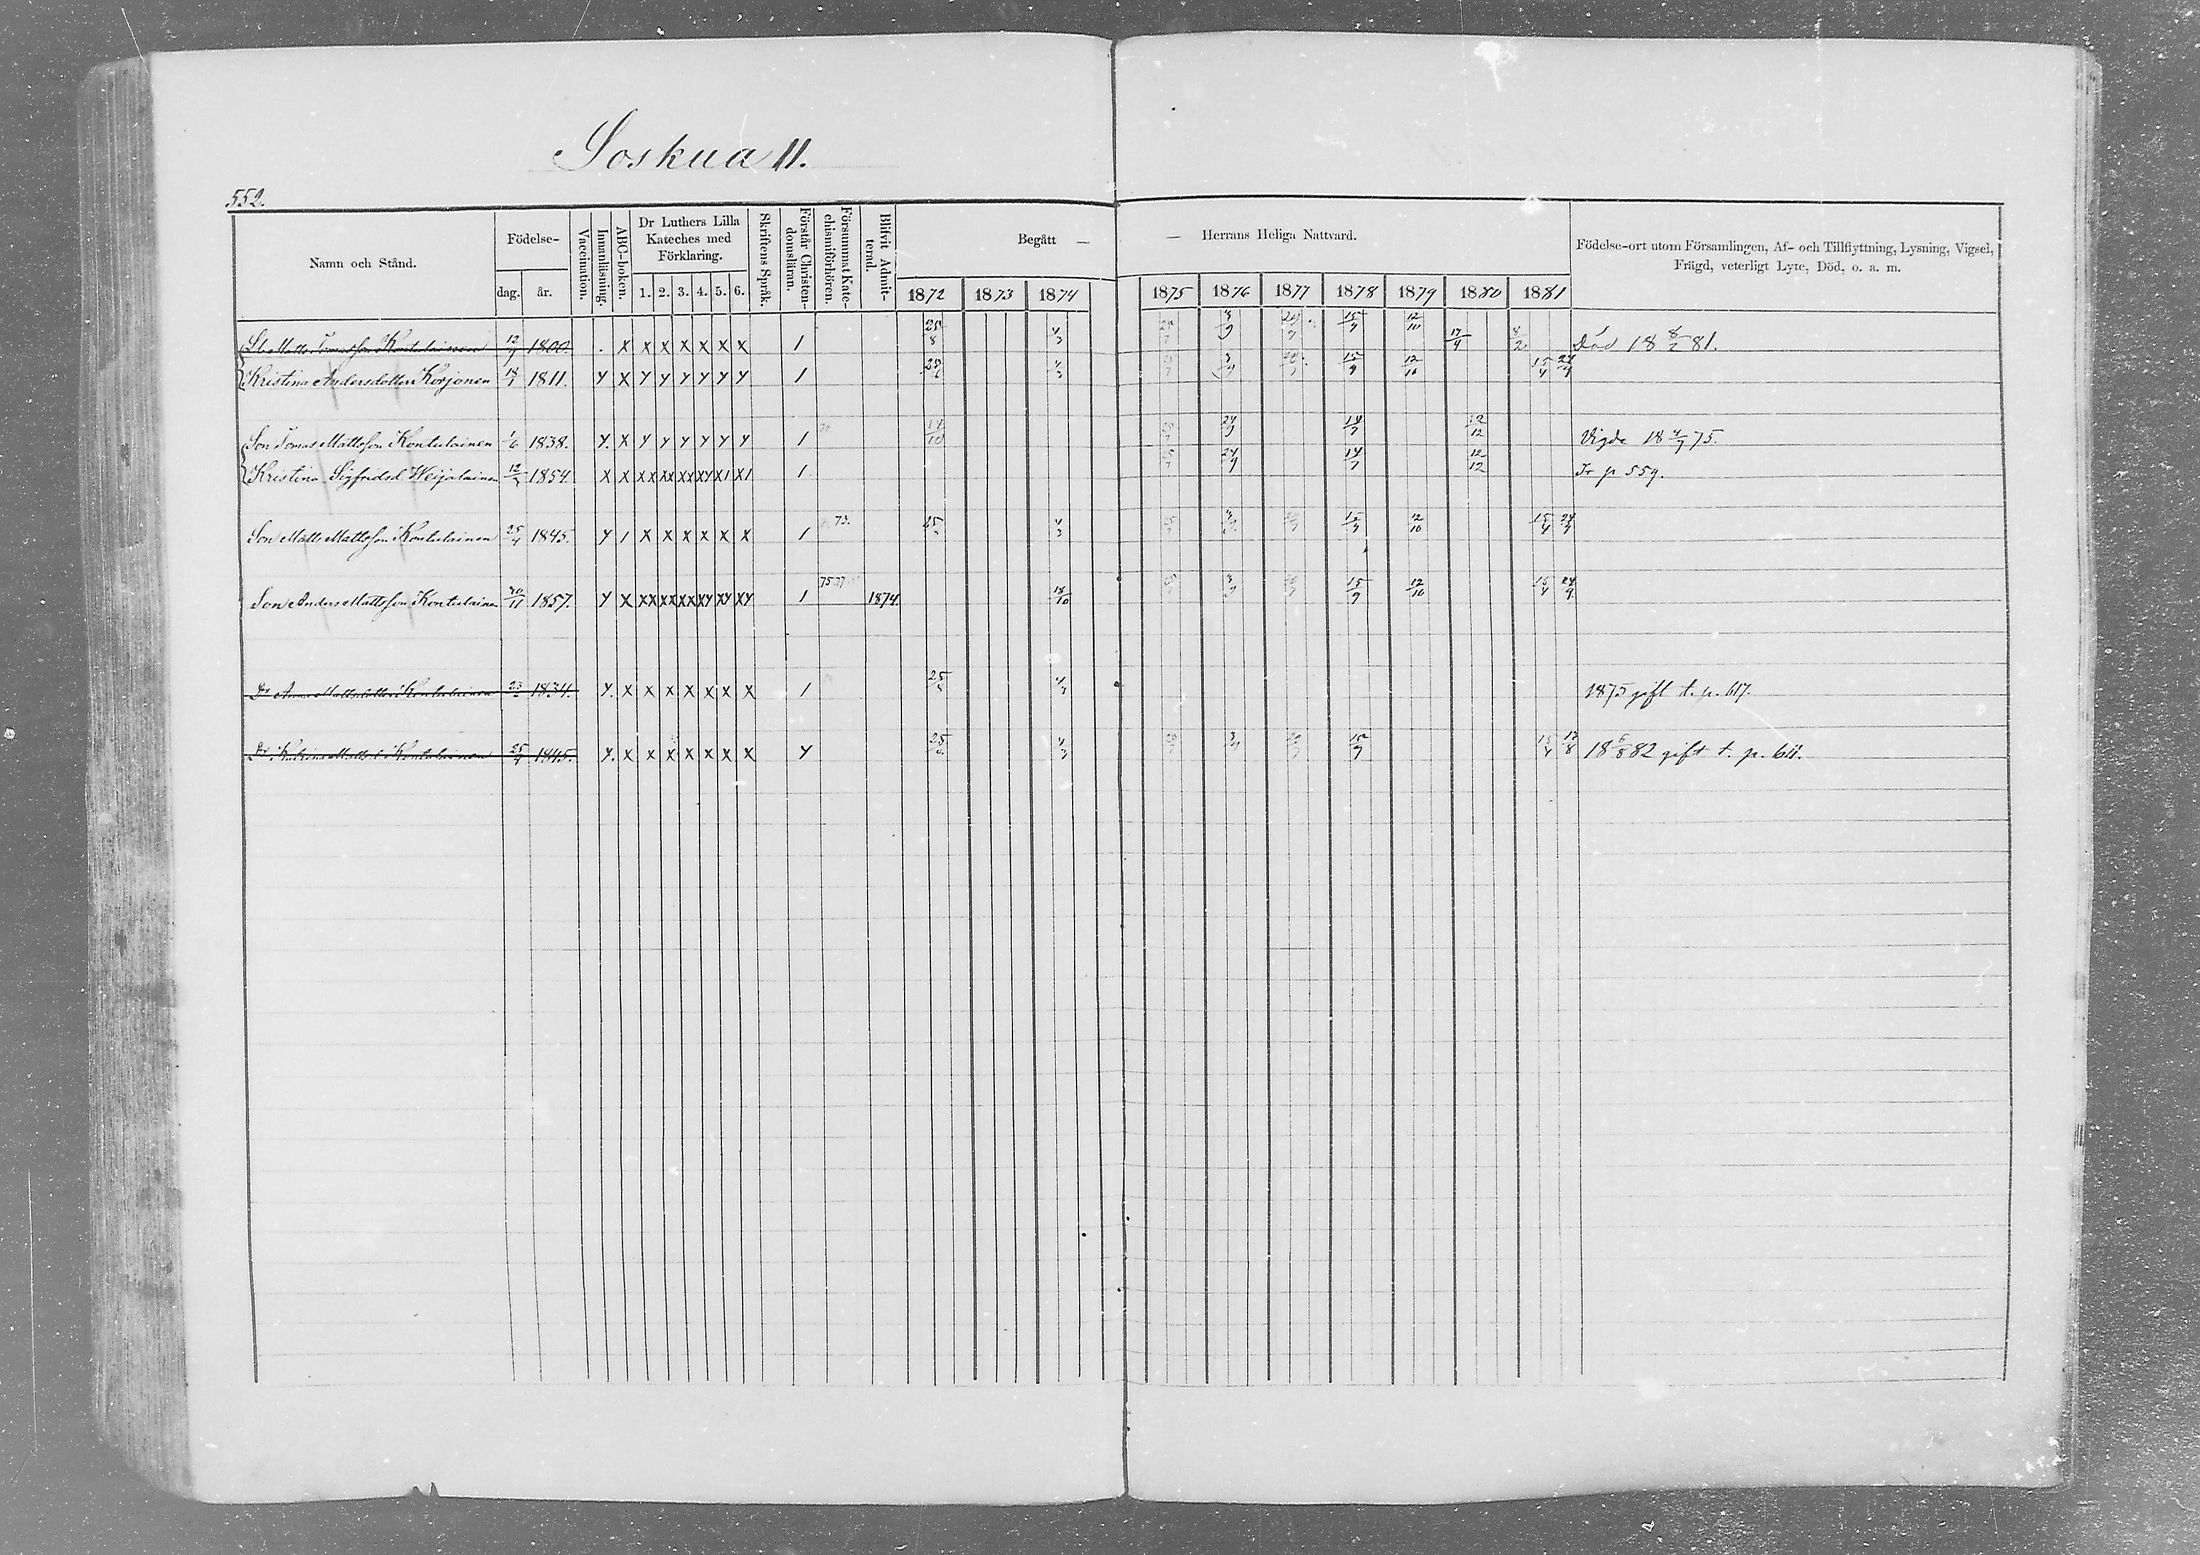 Soskua 11.
552.
Namn och Stånd. Födelse- dag. år. Vaccination. Innanläsning. ABC-boken. Dr Luthers Lilla Kateches med Förklaring. 1. 2. 3. 4. 5. 6. Skriftens Språk. Förstår Christendomsläran. Försummat Katechismiförhören. Blifvit Admitterad. Begått — — Herrans Heliga Nattvard. 1872 1873 1874 1875 1876 1877 1878 1879 1880 1881 Födelse-ort utom Församlingen, Af- och Tillflyttning, Lysning, Vigsel, Frägd, veterligt Lyte, Död, o. a. m.
Matts Tomasson Kontulainen 1800. x x x x x x x 1 4/3 15/9 12/10 17/4 8/2 Död 18 8/2 81.
Kristina Andersdotter Korjonen 1811. y x y y y y y y 1 4/3 15/9 12/10 15/4 24/9
Son Tomas Mattsson Kontulainen 1/6 1838. y. x y y y y y y 1 14/10 24/9 14/7 12/12 Vigde 18 4/7 75.
Kristina Sigfridsd Weijalainen 1854 x x xx xx xx xy x1 x1 1. 24/9 14/7 12/12 Fr p 559.
Son Matts Mattsson Kontulainen 25/4 1845. y 1 x x x x x x 1 73. 4/3 15/9 12/10 15/4 24/9
Son Anders Mattsson Kontulainen 30/11 1857. y x xx xx xx xy xy xy 1 75 77 1874. 18/10 15/9 12/10 15/4 24/9
Dr Anna Mattsdotter Kontulainen 1834. y. x x x x x x x 1 4/3 1875 gift t. p. 617.
Dr Katrina Mattsd Kontulainen 1845. y. x x x x x x x y 4/3 15/9 15/4 13/8 18 5/8 82 gift t. p. 611.